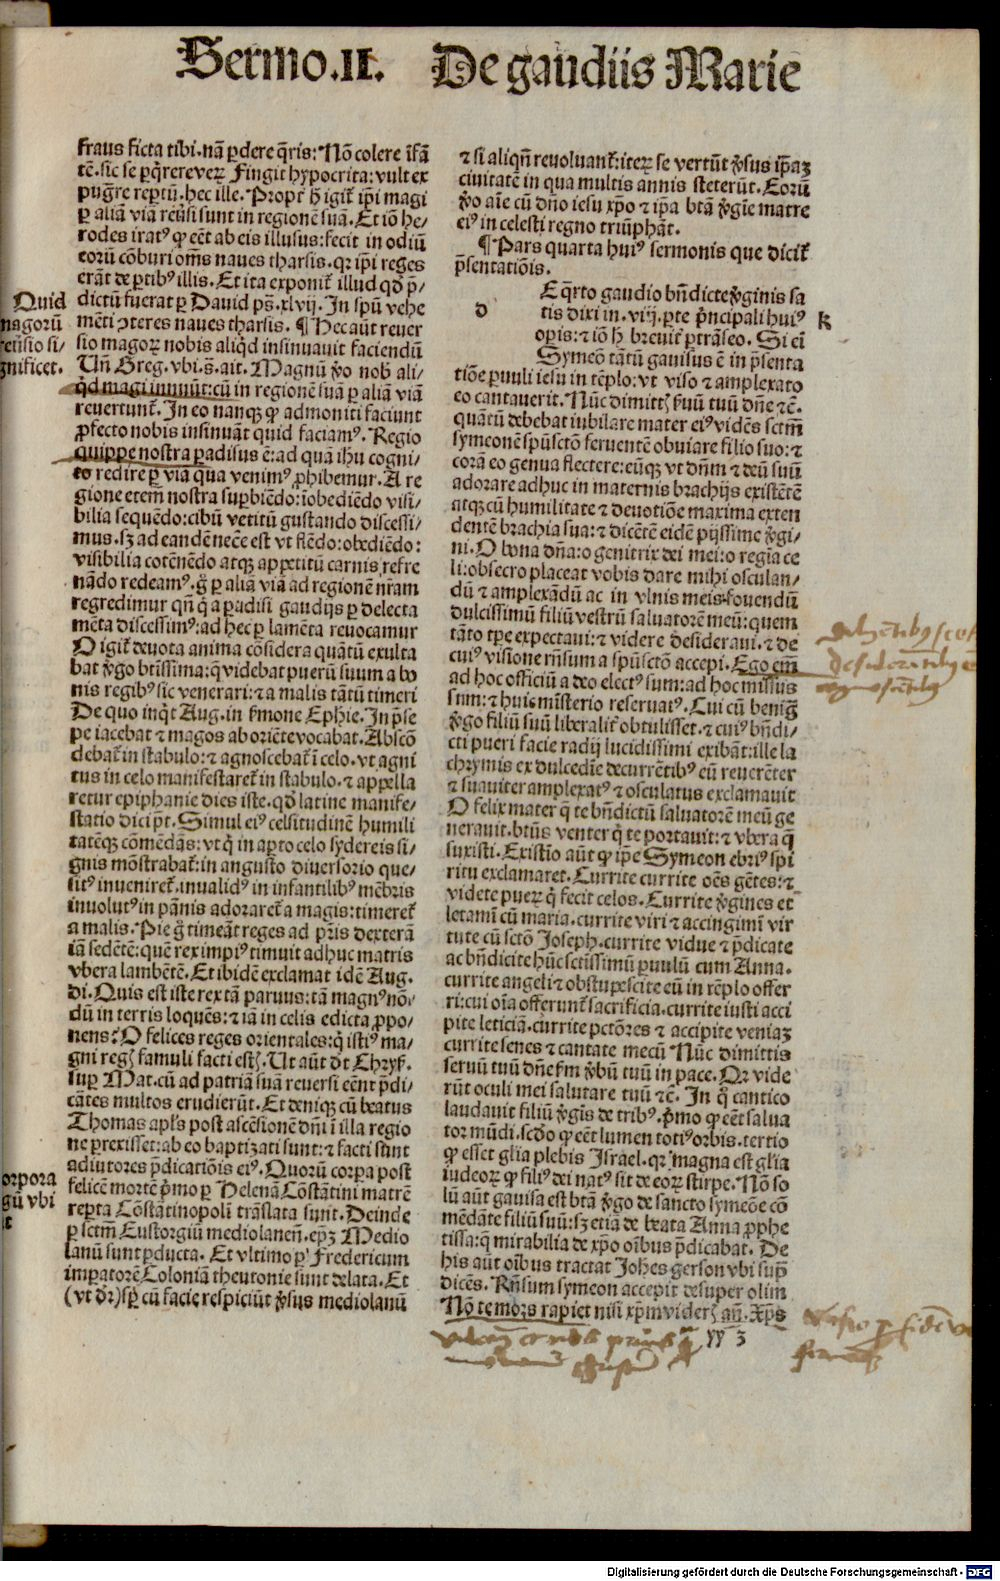 Sermo.II. De gaudiis Marie
fraus ficta tibi. nā ꝑdere q̄ris: Nō colere īfā
tē. sic se ꝑq̄rerevereꝝ Fingit hypocrita: vult ex
pugre reptū. hec ille. Propt̄ h̄ igit̄ ip̄i magi
ꝑ aliā viā reūsi sunt in regionē suā. Et iō he/
rodes irat⁹ ꝙ eēt ab eis illusus: fecit in odiū
eorū cōburi om̄s naues tharsis. qꝛ ip̄i reges
erāt de ꝑtib⁹ illis. Et ita exponit̄ illud qd̓ p̄/
dictū fuerat ꝑ Dauid ps̄. xlvij. In spū vehe
mēti ↄteres naues tharsis. ¶ Hec aūt reuer
sio magoꝝ nobis aliqd̄ insinuauit faciendū
Un̄ Greg. vbi. s̄. ait. Magnū v̓o nob̄ ali/
qd̄ magi innuūt: cū in regionē suā ꝑ aliā viā
reuertunt̄. In eo nanqꝫ ꝙ admoniti faciunt
ꝓfecto nobis insinuāt quid faciam⁹. Regio
quippe nostra ꝑadisus ē: ad quā ihu cogni/
to redire ꝑ viā qua venim⁹ ꝓhibemur. A re
gione etem̄ nostra suꝑbiēdo: īobediēdo visi/
bilia sequēdo: cibū vetitū gustando discessi/
mus. sꝫ ad eandē necēe est vt flēdo: obediēdo:
visibilia cōtēnēdo atqꝫ appetitū carnis refre
nādo redeam⁹. g̓ ꝑ aliā viā ad regionē nr̄am
regredimur qn̄ q̓ a ꝑadisi gaudijs ꝑ delecta
mēta discessim⁹: ad hec ꝑ lamēta reuocamur
O igit̄ deuota anima cōsidera quātū exulta
bat v̓go btīssima: q̄ videbat puerū suum a bo
nis regib⁹ sic venerari: ⁊ a malis tātū timeri
De quo inq̓t Aug. in ẜmone Ephie. In p̄se
pe iacebat ⁊ magos ab oriēte vocabat. Abscō
debat̄ in stabulo: ⁊ agnoscebat̄ ī celo. vt agni
tus in celo manifestaret̄ in stabulo. ⁊ appella
retur epiphanie dies iste. qd̓ latine manife/
statio dici pōt. Simul ei⁹ celsitudinē humili
tatēqꝫ cōmēdās: vt q̓ in aꝑto celo sydereis si/
gnis mōstrabat̄: in angusto diuersorio que/
sit⁹ inueniret̄. inualid⁹ in infantilib⁹ mēbris
inuolut⁹ in pānis adoraret̄ a magis: timeret̄
a malis. Pie g̓ timeāt reges ad pr̄is dexterā
iā sedētē: quē rex impi⁹ timuit adhuc matris
vbera lambētē. Et ibidē exclamat idē Aug.
di. Quis est iste rex tā paruus: tā magn⁹ nō/
dū in terris loquēs: ⁊ iā in celis edicta ꝓpo/
nens? O felices reges orientales: q̓ isti⁹ ma/
gni reg̓ famuli facti est̓. Ut aūt dt̄ Chryẜ.
suꝑ Mat. cū ad patriā suā reuersi eēnt p̄di/
cātes multos erudierūt. Et deniqꝫ cū beatus
Thomas apl̓s post ascēsionē dn̄i ī illa regio
ne ꝑrexisset: ab eo baptizati sunt: ⁊ facti sunt
adiutores p̄dicatiōis ei⁹. Quorū corpa post
felicē mortē p̓mo ꝑ Helenā Cōstātini matrē
reꝑta Cōstātinopolī trāslata sunt. Deinde
ꝑ sctm̄ Eustorgiū mediolaneñ. ep̄ꝫ Medio
lanū sunt ꝑducta. Et vltimo ꝑ Fredericum
imꝑatorē Coloniā theutonie sunt delata. Et
(vt dr̄) sꝑ cū facie respiciūt v̓sus mediolanū
Quid
magorū
reūsio si/
gnificet.
orpora
gū vbi
⁊ si aliqn̄ reuoluant̄: iteꝝ se vertūt v̓sus ip̄aꝫ
ciuitatē in qua multis annis steterūt. Eorū
v̓o aīe cū dn̄o iesu xp̄o ⁊ ip̄a btā v̓gīe matre
ei⁹ in celesti regno triūphāt.
¶ Pars quarta hui⁹ sermonis que dicit̄
p̄sentatiōis.
d
E q̄rto gaudio bn̄dicte v̓ginis sa
tis dixi in. viij. ꝑte p̓ncipali hui⁹
K
opis: ⁊ iō h̄ breuit̄ ꝑtrāseo. Si ei
Symeō tātū gauisus ē in p̄senta
tiōe ꝑuuli iesu in tēplo: vt viso ⁊ amplexato
eo cantauerit. Nūc dimitt̓ ẜuū tuū dn̄e ⁊c̄.
quātū debebat iubilare mater ei⁹ vidēs sctm̄
symeonē spūsctō feruentē obuiare filio suo: ⁊
corā eo genua flectere: eūqꝫ vt dn̄m ⁊ deū suū
adorare adhuc in maternis brachijs existētē
atqꝫ cū humilitate ⁊ deuotiōe maxima exten
dentē brachia sua: ⁊ dicētē eidē pijssime v̓gi/
ni. O bona dn̄a: o genitrix dei mei: o regīa ce
li: obsecro placeat vobis dare mihi osculan/
dū ⁊ amplexādū ac in vlnis meis fouendū
dulcissimū filiū vestrū saluatorē meū: quem
tāto tꝑe expectaui: ⁊ videre desideraui. ⁊ de
cui⁹ visione rn̄sum a spūsctō accepi. Ego em̄
ad hoc officiū a deo elect⁹ sum: ad hoc missus
sum: ⁊ huic mīsterio reseruat⁹. Cui cū benig̓
v̓go filiū suū liberalit̄ obtulisset. ⁊ cui⁹ bn̄di/
cti pueri facie radij lucidissimi exibāt: ille la
chrymis ex dulcedīe decurrētib⁹ eū reuerēter
⁊ suauiter amplexat⁹ ⁊ osculatus exclamauit
O felix mater q̄ te bn̄dictū saluatorē meū ge
nerauit. bt̄us venter q̓ te portauit: ⁊ vbera q̄
suxisti. Existīo aūt ꝙ ip̄e Symeon ebri⁹ spi
ritu exclamaret. Currite currite oēs gētes: ⁊
videte pueꝝ q̓ fecit celos. Currite v̓gines et
letamī cū maria. currite viri ⁊ accingimī vir
tute cū sctō Joseph. currite vidue ⁊ p̄dicate
ac bn̄dicite hūc sctīssimū ꝑuulū cum Anna.
currite angeli ⁊ obstupescite eū in tēplo offer
ri: cui oīa offerunt̄ sacrificia. currite iusti acci
pite leticiā. currite pctōres ⁊ accipite veniaꝫ
currite senes ⁊ cantate mecū Nūc dimittis
seruū tuū dn̄e ẜm v̓bū tuū in pace. Qꝛ vide
rūt oculi mei salutare tuū ⁊c̄. In q̓ cantico
laudauit filiū v̓gis de trib⁹. p̓mo ꝙ eēt salua
tor mūdi. scd̓o ꝙ eēt lumen toti⁹ orbis. tertio
ꝙ esset gl̄ia plebis Israel. qꝛ magna est gl̄ia
iudeoꝝ ꝙ fili⁹ dei nat⁹ sit de eoꝝ stirpe. Nō so
lū aūt gauisa est btā v̓go de sancto symeōe cō
mēdāte filiū suū: sꝫ etiā de beata Anna ꝓphe
tissa: q̄ mirabilia de xp̄o oībus p̄dicabat. De
his aūt oībus tractat Joh̄es gerson vbi supͣ
dicēs. Rn̄sum symeon accepit desuper olim
Nō te mors rapiet nisi xp̄m vider̓ an̄. Xp̄s